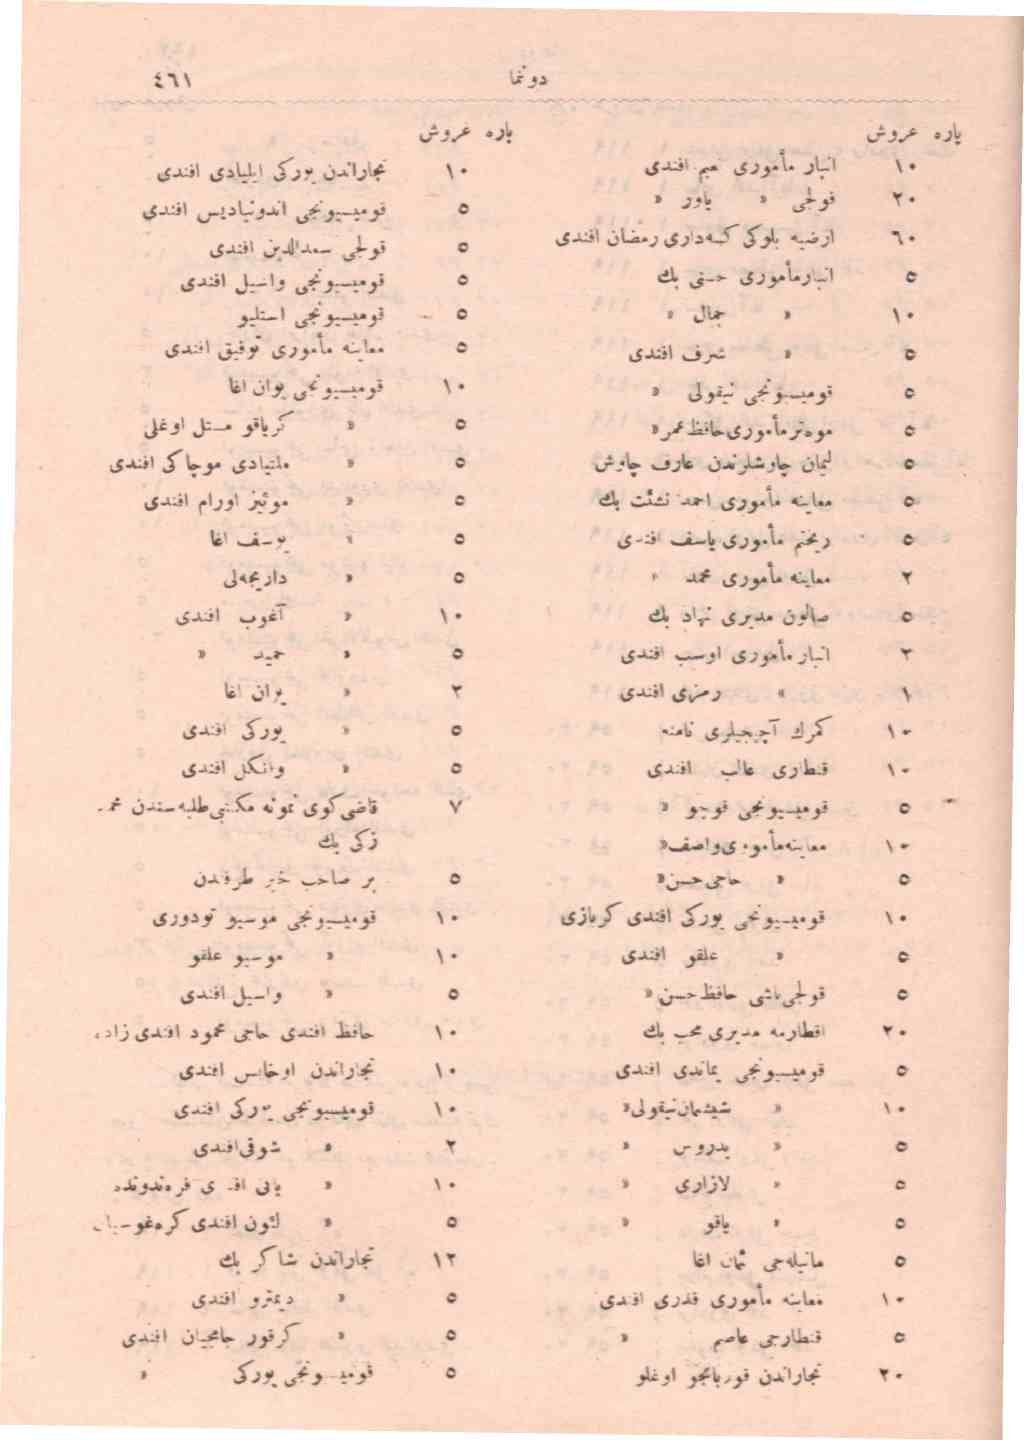 دوننما ٤٦١
پاره غروش
١٠ انبار مأموری نعیم افندی
٢٠ قولجی » یاور »
٦٠ ارضیه بلوکی کیسه‌داری رمضان افندی
٥ انبارمأموری حسنی بك
١٠ » جمال »
٥ » شرف افندی
٥ قومیسیونجی نیقولی »
٥ موه‌تر مأموری حافظ عمر»
٥ لیمان چاوشلرندن عارف چاوش
٥ معاینه مأموری احمد نشئت بك
٥ ریختم مأموری یاسف افندی
٢ معاینه مأموری محمد »
٥ صالون مدیری نهاد بك
٢ انبار مأموری اوسب افندی
١ » رمزی افندی
١٠ کمرك آچیجیلری نامنه
١٠ قنطاری غالب افندی
٥ قومیسیونجی قوچو »
١٠ معاینه‌مأموری واصف»
٥ » حاجی حسن»
١٠ قومیسیونجی یورکی افندی کربازی
٥ » علقو افندی
٥ قولجی‌باشی حافظ حسن»
٢٠ اقطارمه مدیری محب بك
٥ قومیسیونجی یماندی افندی
١٠ » شیشمان‌نیقولی»
٥ » پدروس »
٥ » لازاری »
٥ » یاقو »
٥ مانیله‌جی عثمان اغا
١٠ معاینه مأموری قدری افندی
٥ قنطارجی عاصم »
٢٠ تجاراندن قوربانجو اوغلو
پاره غروش
١٠ تجاراندن یورکی ایلیادی افندی
٥ قومیسیونجی اندونیادیس افندی
٥ قولجی سعدالدین افندی
٥ قومیسیونجی واسیل افندی
٥ قومیسیونجی استلیو
٥ معاینه مأموری توفیق افندی
١٠ قومیسیونجی یوان اغا
٥ » کریاقو مستل اوغلی
٥ » ملتیادی موچاکی افندی
٥ » موئیز اورام افندی
٥ » یوسف اغا
٥ » داریجه‌لی
١٠ » آغوب افندی
٥ » حمید »
٢ » یران اغا
٥ » یورکی افندی
٥ » وانکل افندی
٧ قاضی‌کوی نمونه مکتبی طلبه‌سندن محمد
زکی بك
٥ بر صاحب خیر طرفندن
١٠ قومیسیونجی موسیو تودوری
١٠ » موسیو علقو
٥ » واسیل افندی
١٠ حافظ افندی حاجی محمود افندی زاده
١٠ تجاراندن اوخانس افندی
١٠ قومیسیونجی یورکی افندی
٢ » شوقی افندی
١٠ » یانی افندی فره‌ندونده
٥ » لئون افندی
١٢ تجاراندن شاکر بك
٥ » دیمترو افندی
٥ » کرقور جامجیان افندی
٥ قومیسیونجی یورکی »